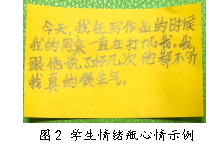 今天,我在写作业的时候
我的同桌一直在打扰我。我
跟他说了好几次他都不听
我真的很生气。
图2 学生情绪瓶心情示例